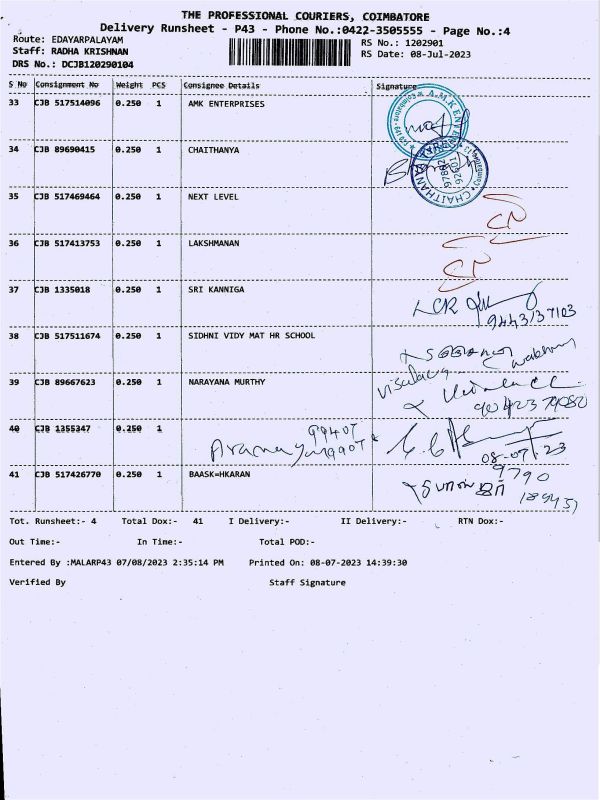 THE PROFESSIONAL COURIERS, COIMBATORE
Delivery Runsheet - P43 - Phone No.:0422-3505555 - Page No.:4
Route: EDAYARPALAYAM
RS No.: 1202901
Staff: RADHA KRISHNAN
RS Date: 08-Jul-2023
DRS No.: DCJB120290104
S No Consignment No Weight PCS Consignee Details Signature
33 CJB 517514096 0.250 1 AMK ENTERPRISES
34 CJB 89690415 0.250 1 CHAITHANYA
CHAITHANYA
35 CJB 517469464 0.250 1 NEXT LEVEL
36 CJB 517413753 0.250 1 LAKSHMANAN
37 CJB 1335018 0.250 1 SRI KANNIGA
9443137103
38 CJB 517511674 0.250 1 SIDHNI VIDY MAT HR SCHOOL
39 CJB 89667623 0.250 1 NARAYANA MURTHY
9042379080
40 CJB 1355347 0.250 1
08-07-23
41 CJB 517426770 0.250 1 BAASK=HKARAN
9790
189451
Tot. Runsheet:- 4 Total Dox:- 41 I Delivery:- II Delivery:- RTN Dox:-
Out Time:- In Time:- Total POD:-
Entered By :MALARP43 07/08/2023 2:35:14 PM Printed On: 08-07-2023 14:39:30
Verified By Staff Signature